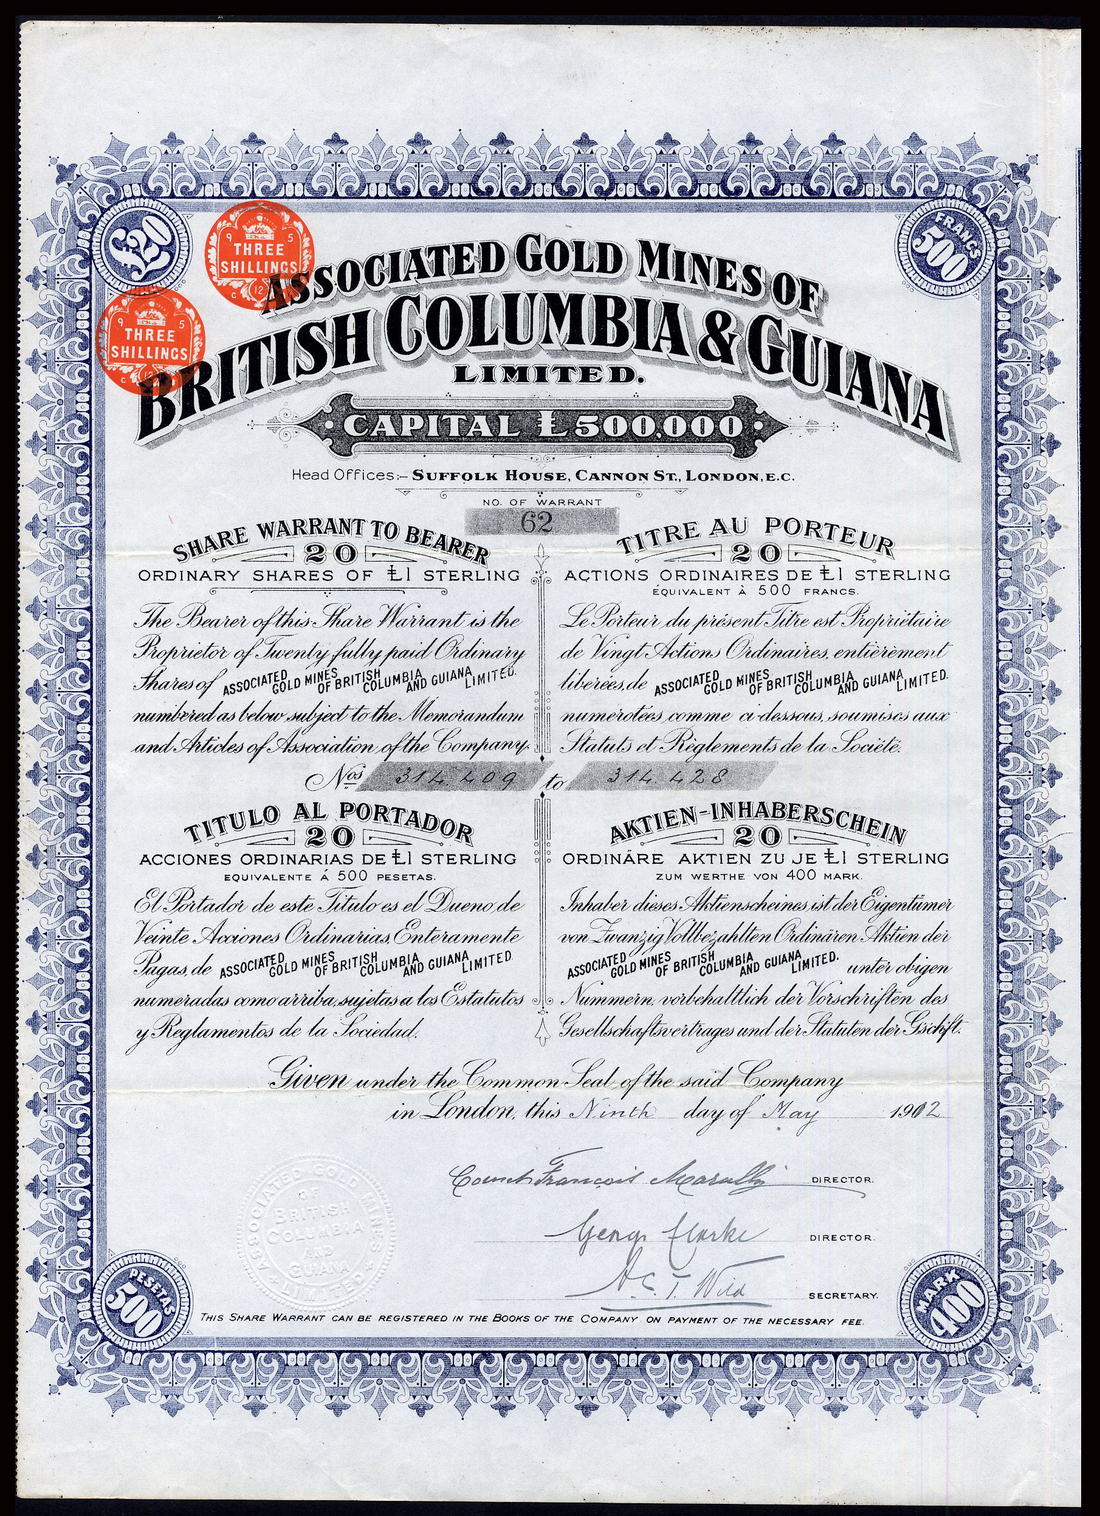 £20
FRANCS
500
9 5
THREE
SHILLINGS
C 12
9 5
THREE
SHILLINGS
C 12
ASSOCIATED GOLD MINES OF
BRITISH COLUMBIA & GUIANA
LIMITED.
CAPITAL £500,000
Head Offices:- SUFFOLK HOUSE, CANNON ST., LONDON, E.C.
NO. OF WARRANT
62
SHARE WARRANT TO BEARER
20
ORDINARY SHARES OF £1 STERLING
The Bearer of this Share Warrant is the
Proprietor of Twenty fully paid Ordinary
Shares of ASSOCIATED GOLD MINES OF BRITISH COLUMBIA AND GUIANA LIMITED.
numbered as below subject to the Memorandum
and Articles of Association of the Company.
TITRE AU PORTEUR
20
ACTIONS ORDINAIRES DE £1 STERLING
ÉQUIVALENT À 500 FRANCS.
Le Porteur du présent Titre est Propriétaire
de Vingt Actions Ordinaires, entièrement
libérées, de ASSOCIATED GOLD MINES OF BRITISH COLUMBIA AND GUIANA LIMITED.
numérotées comme ci-dessous, soumises aux
Statuts et Règlements de la Société.
Nos 314.409 to 314.428
TITULO AL PORTADOR
20
ACCIONES ORDINARIAS DE £1 STERLING
EQUIVALENTE Á 500 PESETAS.
El Portador de este Titulo es el Dueno de
Veinte Acciones Ordinarias, Enteramente
Pagas, de ASSOCIATED GOLD MINES OF BRITISH COLUMBIA AND GUIANA LIMITED
numeradas como arriba, sujetas a los Estatutos
y Reglamentos de la Sociedad.
AKTIEN-INHABERSCHEIN
20
ORDINÄRE AKTIEN ZU JE £1 STERLING
ZUM WERTHE VON 400 MARK.
Inhaber dieses Aktienscheines, ist der Eigentümer
von Zwanzig Vollbezahlten Ordinären Aktien der
ASSOCIATED GOLD MINES OF BRITISH COLUMBIA AND GUIANA LIMITED. unter obigen
Nummern, vorbehaltlich der Vorschriften des
Gesellschaftsvertrages und der Statuten der Gschft.
Given under the Common Seal of the said Company
in London, this Ninth day of May 1902
Count François DIRECTOR.
George Clarke DIRECTOR.
A.C.T. Wild SECRETARY.
ASSOCIATED GOLD MINES
OF
BRITISH
COLUMBIA
AND
GUIANA
LIMITED
THIS SHARE WARRANT CAN BE REGISTERED IN THE BOOKS OF THE COMPANY ON PAYMENT OF THE NECESSARY FEE.
PESETAS
500
MARK
400